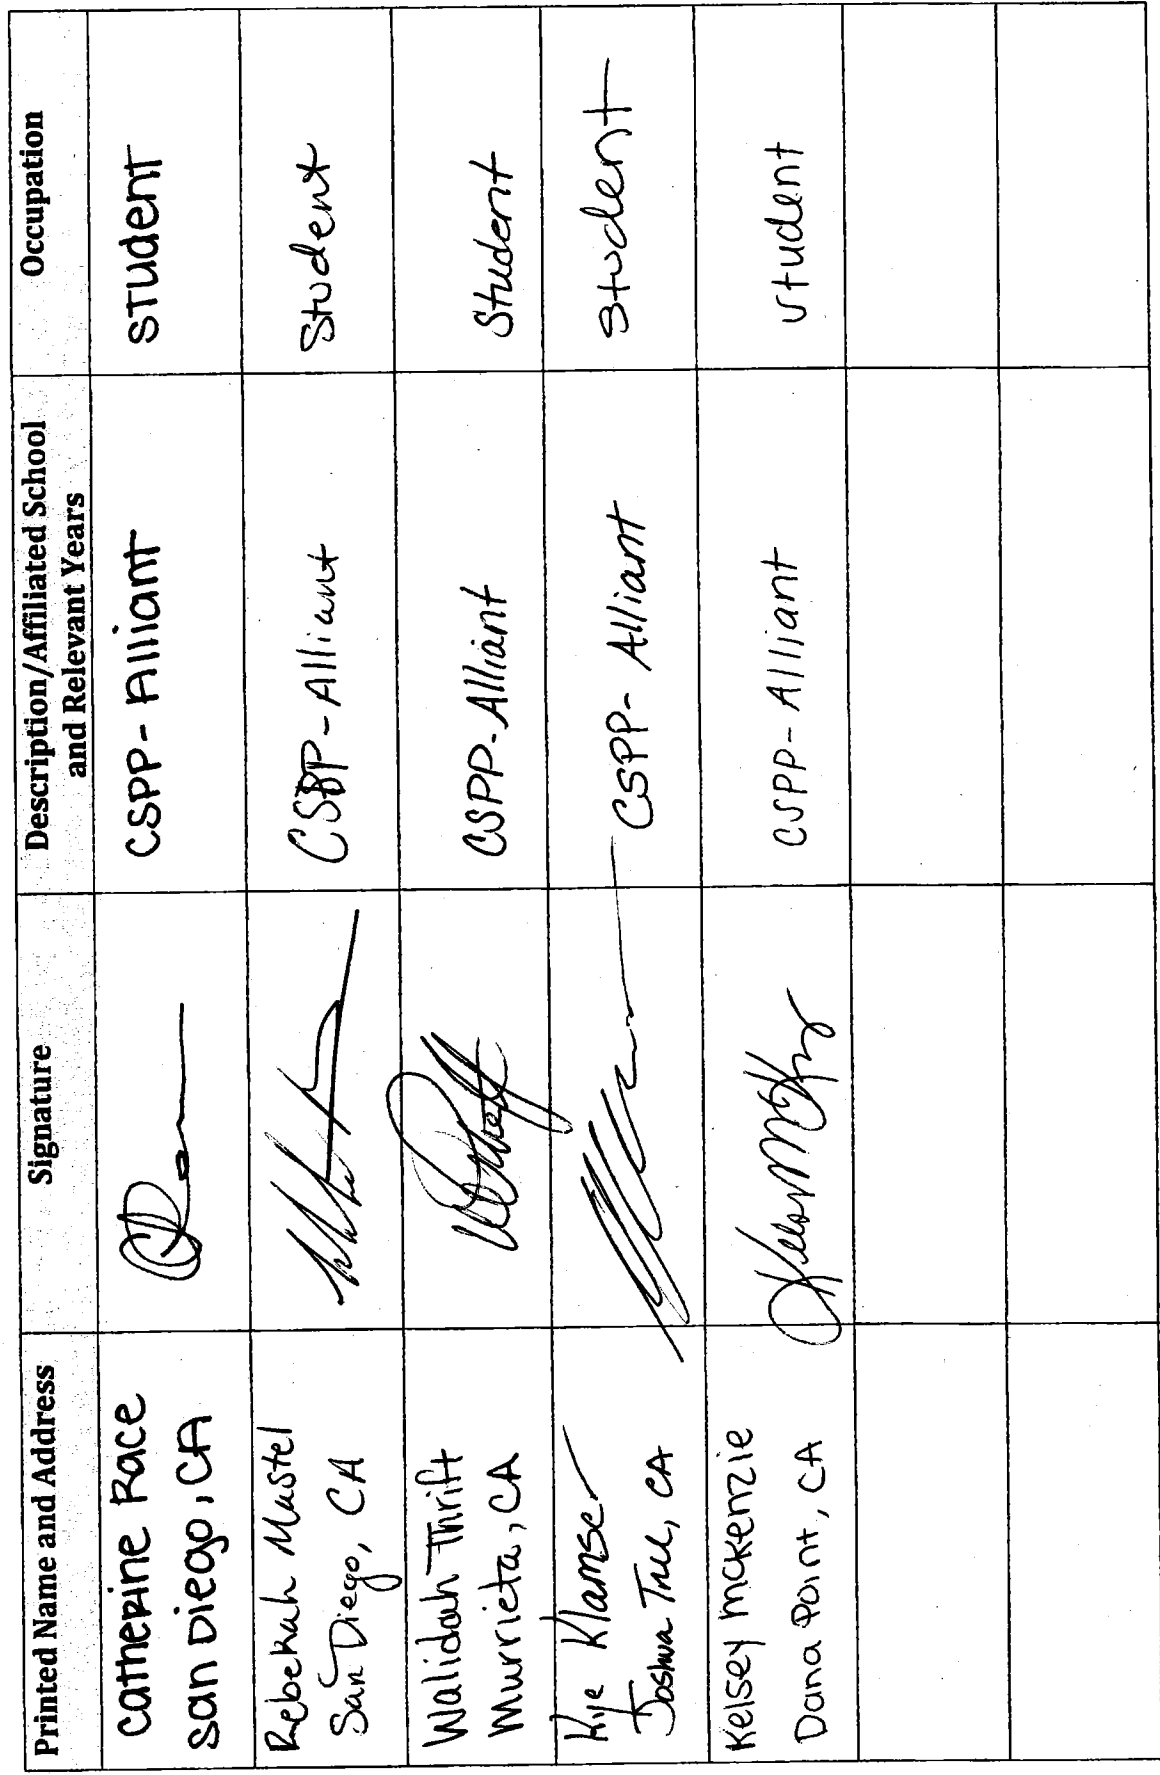 Printed Name and Address
Signature
Description/Affiliated School
and Relevant Years
Occupation
Catherine Race
San Diego, CA
CSPP - Alliant
Student
Rebekah Mastel
San Diego, CA
CSPP - Alliant
Student
Walidah Thrift
Murrieta, CA
CSPP-Alliant
Student
Kye Klamser
Joshua Tree, CA
CSPP- Alliant
Student
Kelsey McKenzie
Dana Point, CA
CSPP- Alliant
Student